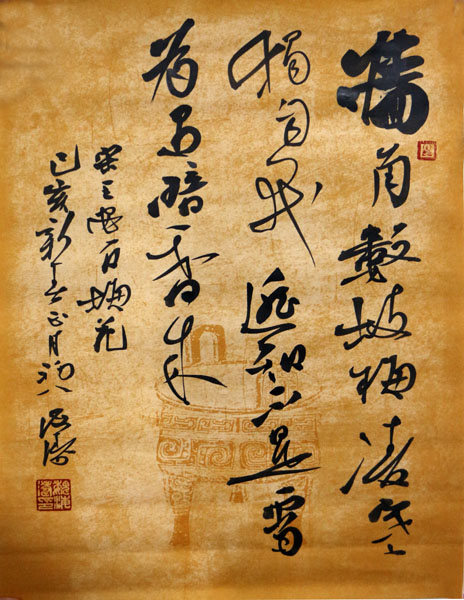 牆角數枝梅凌寒
獨自開遥知不是雪
為有暗香来
宋王安石梅花
己亥新春正月初八